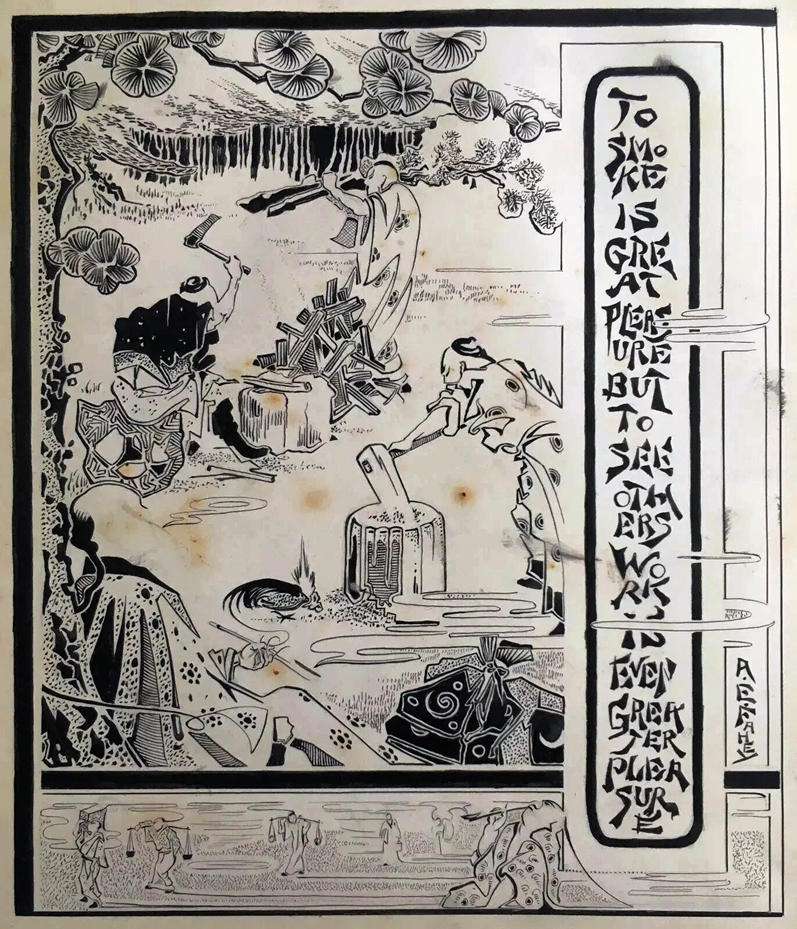 TO
SMO
KE
IS
GRE
AT
PLEAS
URE
BUT
TO
SEE
OTH
ERS
WO
RK
IS
EVEN
GREA
TER
PLEA
SUR
E